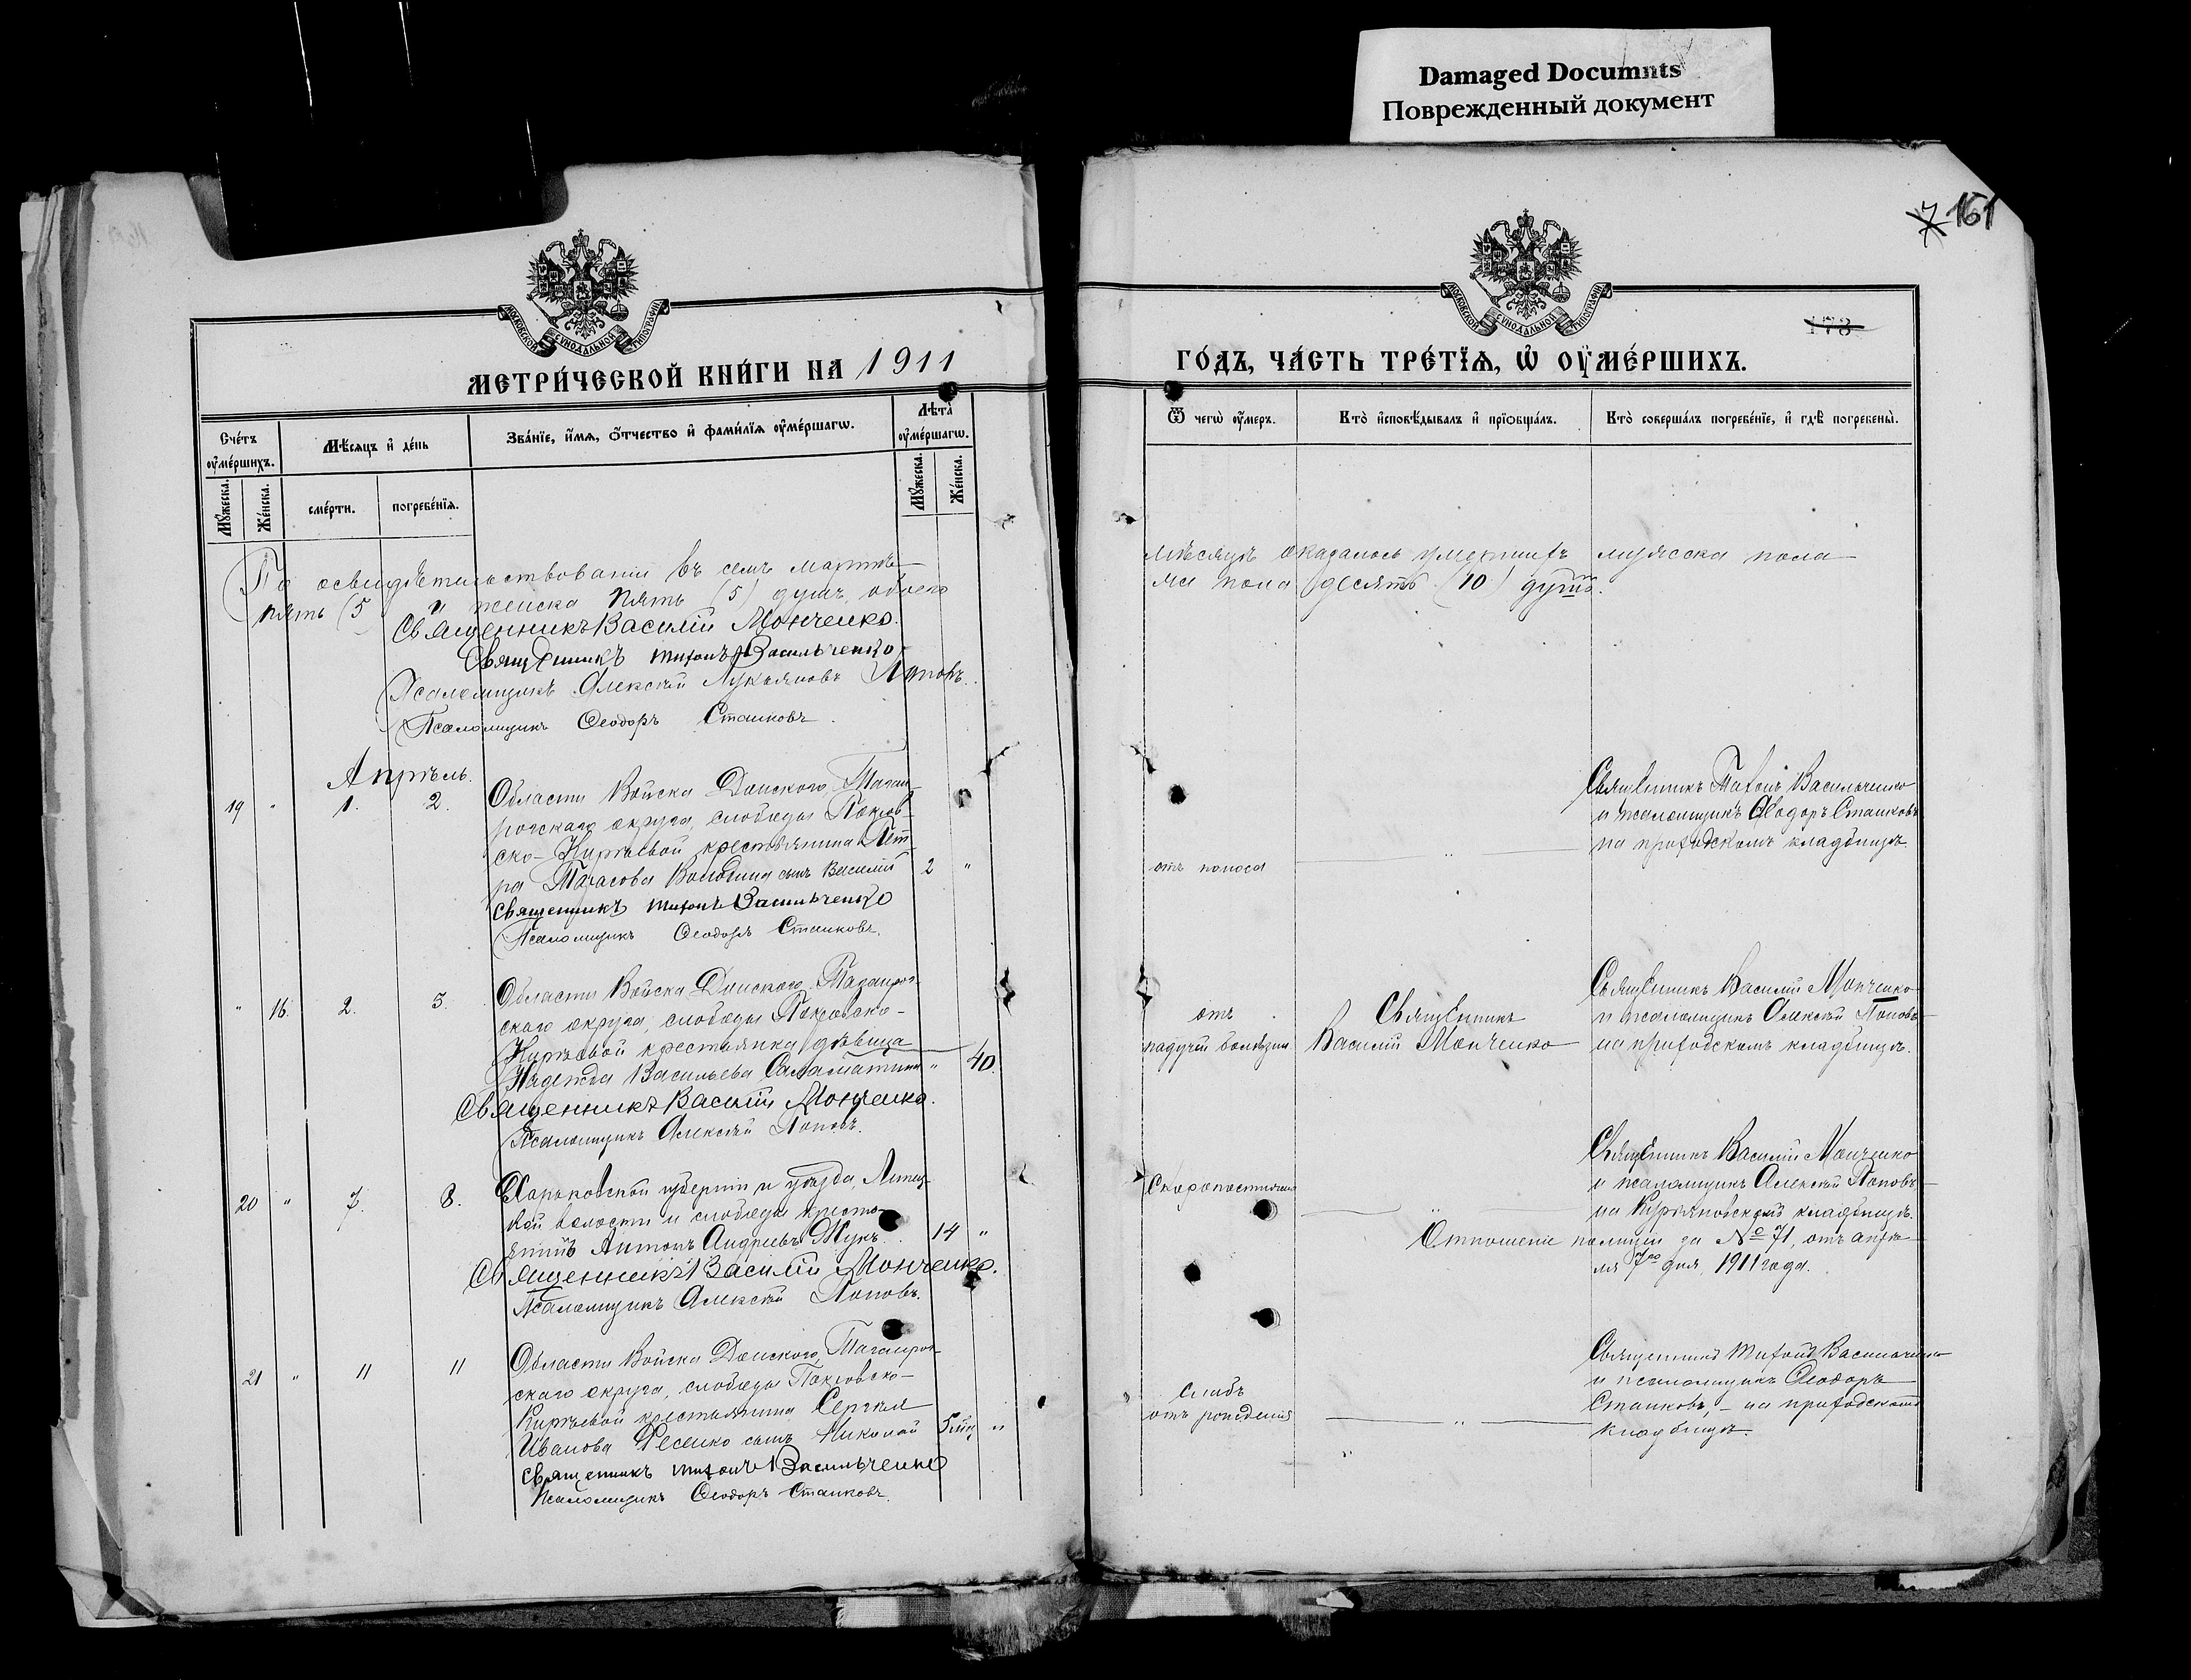 Damaged Documnts
Поврежденный документ
161
173
МОСКОВСКОЙ СУНОДАЛЬНОЙ ТИПОГРАФІИ
МОСКОВСКОЙ СУНОДАЛЬНОЙ ТИПОГРАФІИ
МЕТРИ́ЧЕСКОЙ КНИ́ГИ НА 1911
ГО́ДЪ, ЧА́СТЬ ТРЕ́ТЇѦ, Ѡ҆ ОУ҆МЕ́РШИХЪ.
Сче́тъ оу҆ме́ршихъ.
Мѣ́сѧцъ и҆ де́нь
Зва́нїе, и҆́мѧ, ѻ҆́тчество и҆ фами́лїѧ оу҆ме́ршагѡ.
Лѣ́та̀ оу҆ме́ршагѡ.
Мꙋ́жеска.
Же́нска.
сме́рти.
погребе́нїѧ.
Мꙋ́жеска.
Же́нска.
Ѿ чегѡ̀ оу҆́меръ.
Кто̀ и҆сповѣ́дывалъ и҆ прїѻбща́лъ.
Кто̀ соверша́лъ погребе́нїе, и҆ гдѣ̀ погребены̀.
По освидѣтельствованіи въ семъ мартѣ
мѣсяцѣ оказалось умершихъ мужска пола
пять (5) и женска пять (5) душъ, обоего
же пола десять (10) душъ.
Священникъ Василій Монченко.
Священникъ Тихонъ Васильченко
Псаломщикъ Алексѣй Лукьяновъ Поповъ.
Псаломщикъ Ѳеодоръ Станковъ.
Апрѣль.
19 " 1. 2.
Области Войска Донского, Таган-
рогскаго округа, слободы Покров-
ско-Кирѣевой крестьянина Пет-
ра Тарасова сынъ Василій 2 "
Священникъ Тихонъ Васильченко
Псаломщикъ Ѳеодоръ Станковъ.
отъ поноса
"
Священникъ Тихонъ Васильченко
и псаломщикъ Ѳеодоръ Станковъ
на приходскомъ кладбищѣ.
" 16. 2. 3.
Области Войска Донского, Таганрог-
скаго округа, слободы Покровско-
Кирѣевой крестьянка дѣвица
Надежда Васильева " 40.
Священникъ Василій Монченко.
Псаломщикъ Алексѣй Поповъ.
отъ
падучей болѣзни
Священникъ
Василій Монченко
Священникъ Василій Монченко
и псаломщикъ Алексѣй Поповъ
на приходскомъ кладбищѣ.
20 " 7. 8.
Харьковской губерніи и уѣзда, Липец-
кой волости и слободы кресть-
янинъ Антонъ Андреевъ Жукъ. 14 "
Священникъ Василій Монченко.
Псаломщикъ Алексѣй Поповъ.
Скоропостижно
"
Священникъ Василій Монченко
и псаломщикъ Алексѣй Поповъ
на кладбищѣ.
Отношеніе полиціи за № 71, отъ апрѣ-
ля 7го дня, 1911 года.
21 " 11 11
Области Войска Донского, Таганрог-
скаго округа, слободы Покровско-
Кирѣевой крестьянина Сергѣя
Иванова Фесенко сынъ Николай 5 мѣ "
Священникъ Тихонъ Васильченко
Псаломщикъ Ѳеодоръ Станковъ.
Слабъ
отъ рожденія
"
Священникъ Тихонъ Васильченко
и псаломщикъ Ѳеодоръ
Станковъ, - на приходскомъ
кладбищѣ.